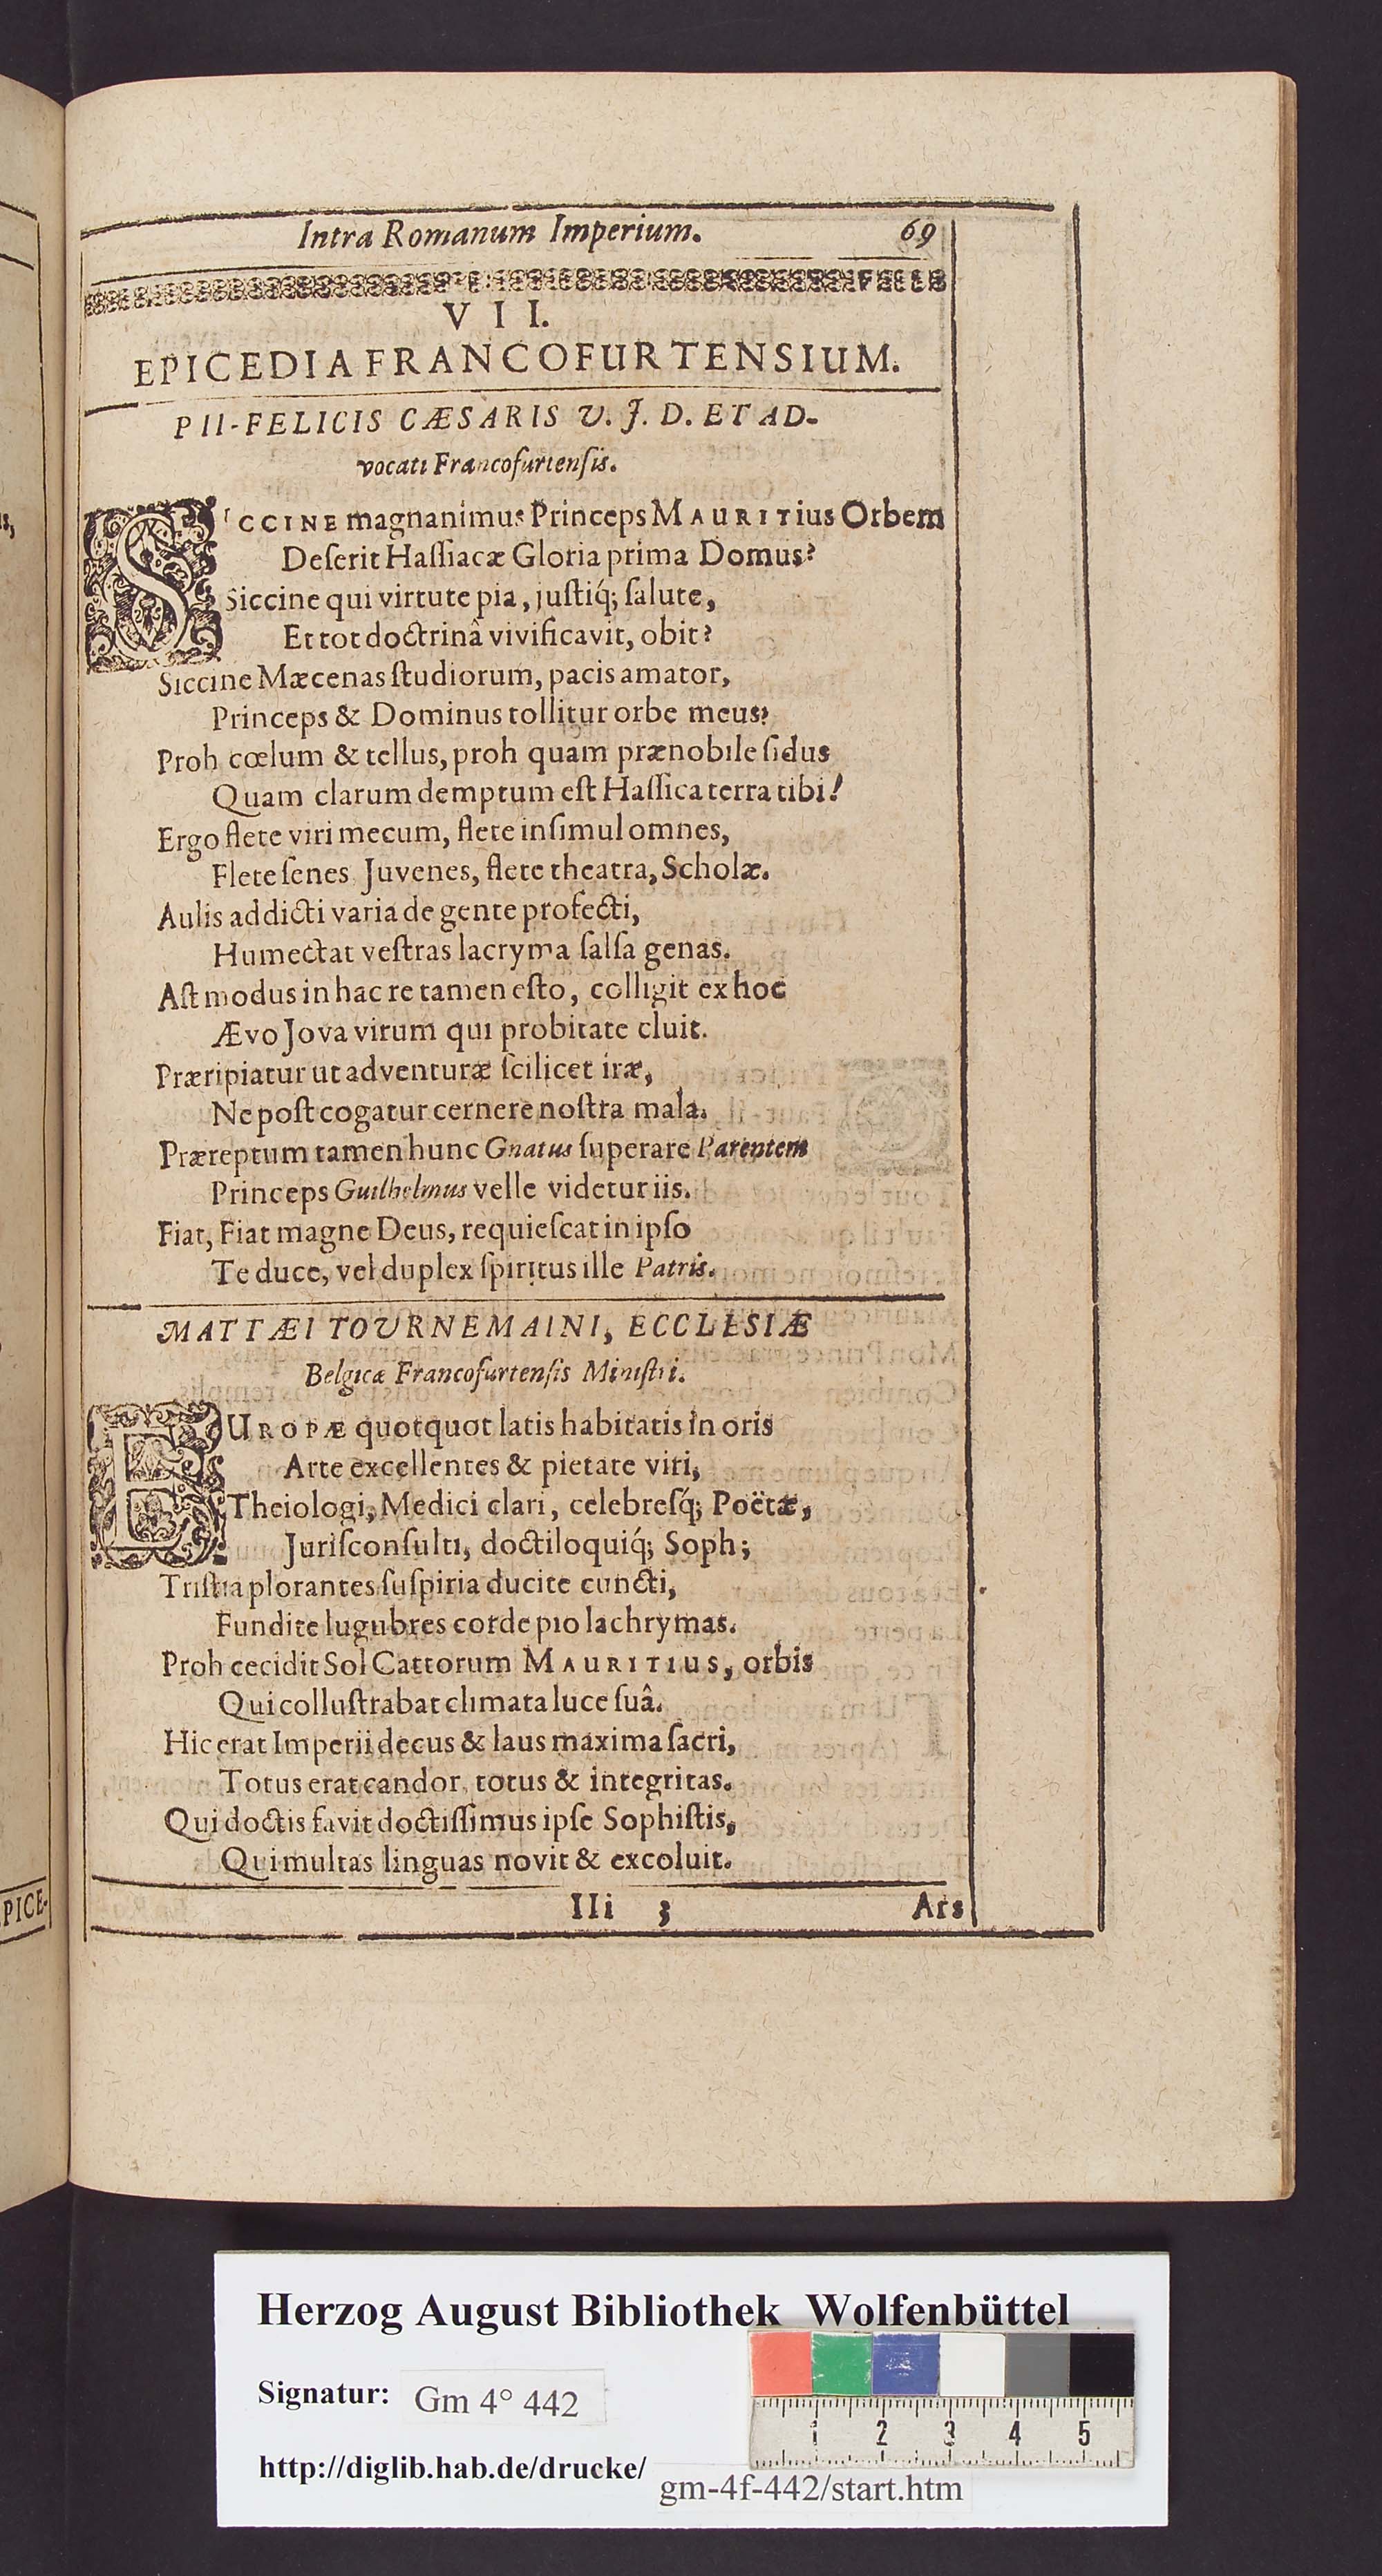 Intra Romanum Imperium. 69
VII.
EPICEDIA FRANCOFURTENSIUM.
PII-FELICIS CÆSARIS V. J. D. ET AD-
vocati Francofurtensis.
SICCINE magnanimus Princeps MAURITius Orbem
Deſerit Haſſiacæ Gloria prima Domus?
Siccine qui virtute pia, juſtiq́; ſalute,
Et tot doctrinâ vivificavit, obit?
Siccine Mæcenas ſtudiorum, pacis amator,
Princeps & Dominus tollitur orbe meus?
Proh cœlum & tellus, proh quam prænobile ſidus
Quam clarum demptum eſt Haſſica terra tibi!
Ergo flete viri mecum, flete inſimul omnes,
Flete ſenes Juvenes, flete theatra, Scholæ.
Aulis addicti varia de gente profecti,
Humectat veſtras lacryma ſalſa genas.
Aſt modus in hac re tamen eſto, colligit ex hoc
Ævo Jova virum qui probitate cluit.
Præripiatur ut adventuræ ſcilicet iræ,
Ne poſt cogatur cernere noſtra mala.
Præreptum tamen hunc Gnatus ſuperare Parentem
Princeps Guilhelmus velle videtur iis.
Fiat, Fiat magne Deus, requieſcat in ipſo
Te duce, vel duplex ſpiritus ille Patris.
MATTÆI TOVRNEMAINI, ECCLESIÆ
Belgicæ Francofurtenſis Miniſtri.
EUROPÆ quotquot latis habitatis in oris
Arte excellentes & pietate viri,
Theiologi, Medici clari, celebreſq́; Poëtæ,
Juriſconſulti, doctiloquiq́; Soph;
Triſtia plorantes ſuſpiria ducite cuncti,
Fundite lugubres corde pio lachrymas.
Proh cecidit Sol Cattorum MAURITIUS, orbis
Qui colluſtrabat climata luce ſuâ.
Hic erat Imperii decus & laus maxima ſacri,
Totus erat candor, totus & integritas.
Qui doctis favit doctiſſimus ipſe Sophiſtis,
Qui multas linguas novit & excoluit.
IIi 3 Ars
PICE-
Herzog August Bibliothek Wolfenbüttel
Signatur: Gm 4° 442
http://diglib.hab.de/drucke/ gm-4f-442/start.htm
1 2 3 4 5